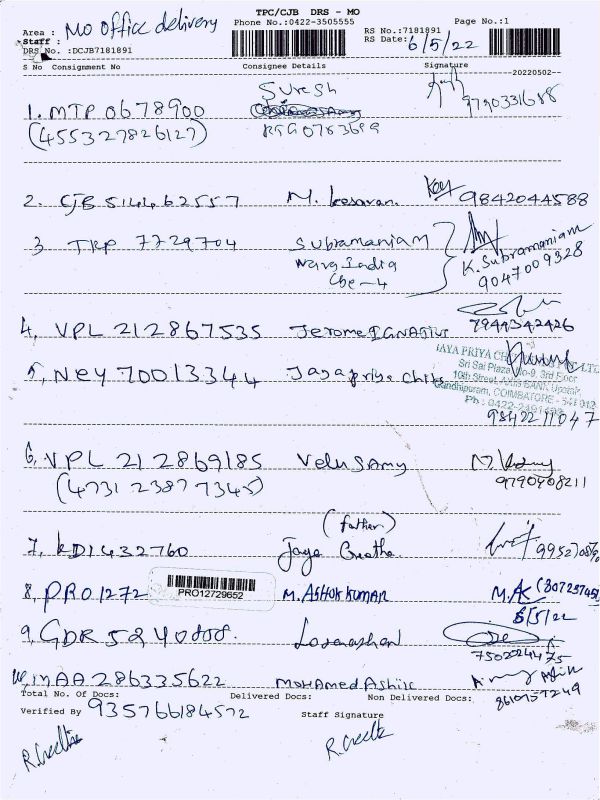 TPC/CJB DRS - MO
Phone No.:0422-3505555 Page No.:1
Area : Mo office delivery RS No.:7181891
Staff : RS Date: 6/5/22
DRS No.:DCJB7181891
S No Consignment No Consignee Details Signature
20220502
Suresh
1. MTP 0678900 9790331688
(455327826127)
2. CJB 514462557 M. Kesavan 9842044588
3 TRP 7729704 Subramaniam K. Subramaniam
Nava India 9047009328
Cbe-4
4, VPL 212867535 Jerome IGNATIUS 7944342426
JAYA PRIYA
5, Ney 70013344 Jayapriya Chits
Sri Sai Plaza No-9, 3rd Floor
10th Street, AXIS BANK Upstair,
Gandhipuram, COIMBATORE - 641 012
Ph : 0422-
9842211047
6, VPL 212869185 Velusamy
(4731 2387 7345) 9790408211
(father)
7, KDI 432760 Jaya
8, PRO1272 PRO12729652 M. Ashok kumar M.AK
6/5/22
9, GDR 5240888.
7502224475
10, MAA 286335622 Mohamed Ashik
8610957249
Total No. Of Docs: Delivered Docs: Non Delivered Docs:
Verified By 935766184572 Staff Signature